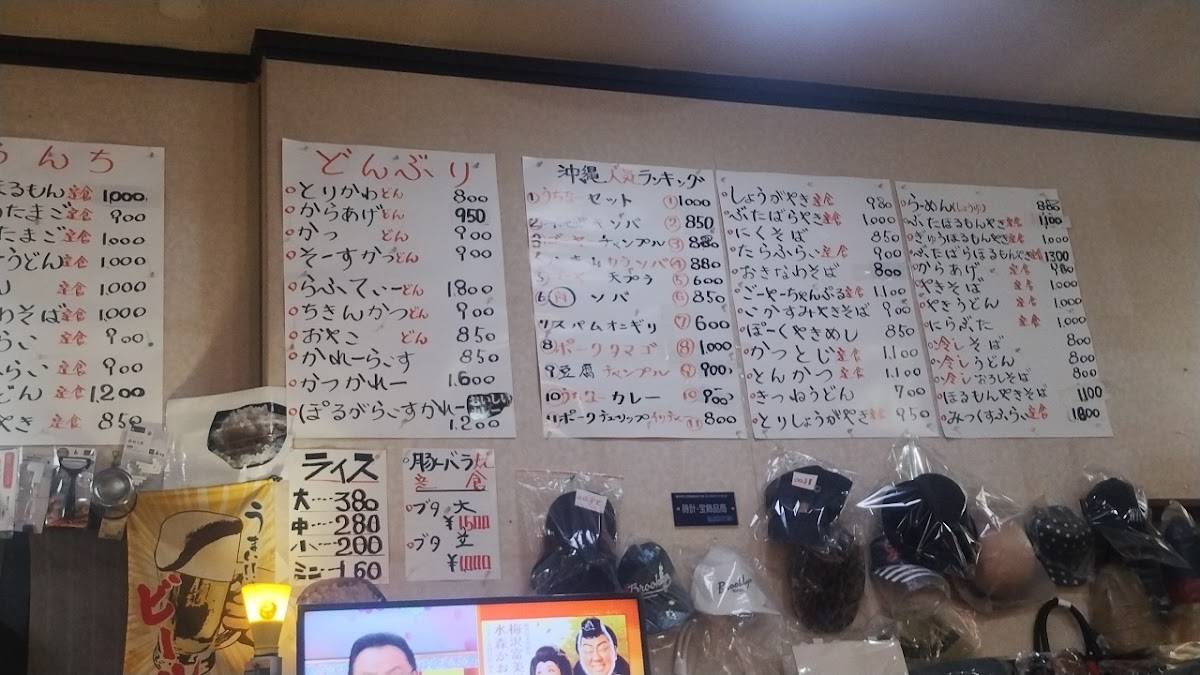 んち
ほるもん定食 1,000
たまご定食 900
たまご定食 1,000
うどん定食 1,000
1,000
わそば定食 1,000
らい 定食 900
ふらい 定食 900
どん 定食 1,200
やき 定食 850
どんぶり
とりかわどん 800
からあげどん 950
かつ どん 900
そーすかつどん 900
らふてぃーどん 1800
ちきんかつどん 900
おやこ どん 850
かれーらいす 850
かつかれー 1,600
ぽるがらいすかれー おいしい 1,200
沖縄人気ランキング
①うちなーセット ①1000
ソバ ② 850
チャンプル ③
④ 880
天プラ ⑤ 600
6 肉 ソバ ⑥ 850
7スパムオニギリ ⑦ 600
8ポークタマゴ ⑧ 1,000
9豆腐チャンプル ⑨ 900
10うちなーカレー ⑩ 900
11ポークチュリップ ⑪ 800
しょうがやき定食 980
ぶたばらやき定食 1,000
にくそば 850
たらふらい定食 900
おきなわそば 800
ごーやーちゃんぷる定食 1,100
いかすみやきそば 900
ぽーくやきめし 850
かつとじ定食 1,100
とんかつ定食 1,100
きつねうどん 700
とりしょうがやき定食 950
らーめん(しょうゆ) 880
ぶたほるもんやき定食 1,100
ぎゅうほるもんやき定食 1,000
ぶたばらほるもんやき定食 1300
からあげ 定食 980
やきそば 定食 1,000
やきうどん 定食 1,000
にらぶた 定食 1,000
冷しそば 800
冷しうどん 800
冷しおろしそば 800
ほるもんやきそば 1100
みっくすふらい定食 1800
ライス
大‥‥380
中‥‥280
小‥‥200
ミニ‥160
豚バラ
定食
ブタ 大
¥1,600
ブタ 並
¥1,000
うまい!!
ビー
時計・宝飾品店
Brooklyn
Brooklyn
梅沢富美
水森かお